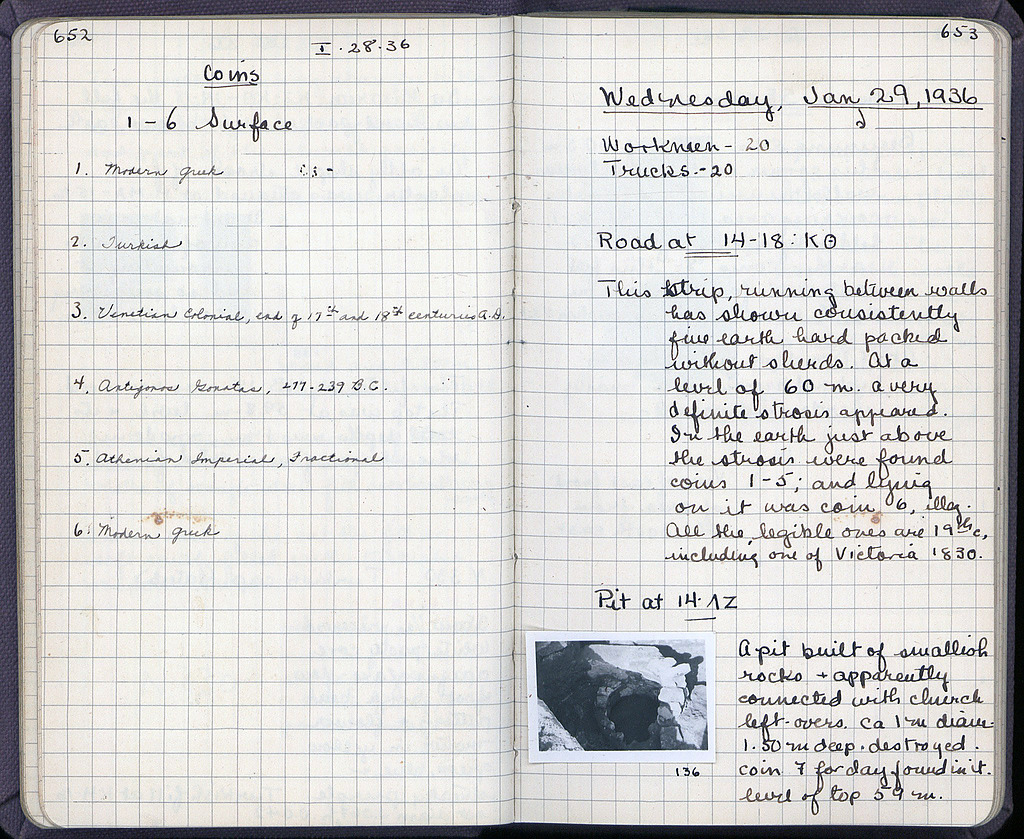 652
I·28·36
Coins
1-6 Surface
1. Modern Greek
2. Turkish
3. Venetian Colonial, end of 17th and 18th centuries A.D.
4. Antigonos Gonatas, 277-239 B.C.
5. Athenian Imperial, Fractional
6. Modern Greek
653
Wednesday, Jan 29, 1936
Workmen - 20
Trucks.-20
Road at 14-18: ΚΘ
This strip, running between walls
has shown consistently
fine earth hard packed
without sherds. At a
level of 60 m. a very
definite strosis appeared.
In the earth just above
the strosis were found
coins 1-5; and lying
on it was coin 6, illeg.
All the legible ones are 19th c,
including one of Victoria 1830.
Pit at 14·ΛΖ
A pit built of smallish
rocks + apparently
connected with church
left-overs. ca 1 m diam.
1.50 m deep. destroyed.
coin 7 for day found in it.
level of top 59 m.
136